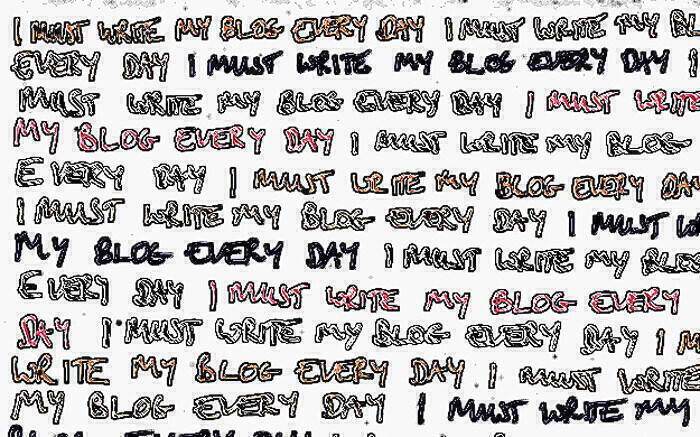 I MUST WRITE MY BLOG EVERY DAY I MUST WRITE MY
EVERY DAY I MUST WRITE MY BLOG EVERY DAY I
MUST WRITE MY BLOG EVERY DAY I MUST WRITE
MY BLOG EVERY DAY I MUST WRITE MY BLOG
EVERY DAY I MUST WRITE MY BLOG EVERY DAY
I MUST WRITE MY BLOG EVERY DAY I MUST
MY BLOG EVERY DAY I MUST WRITE MY BLOG
EVERY DAY I MUST WRITE MY BLOG EVERY
DAY I MUST WRITE MY BLOG EVERY DAY I
WRITE MY BLOG EVERY DAY I MUST WRITE
MY BLOG EVERY DAY I MUST WRITE MY